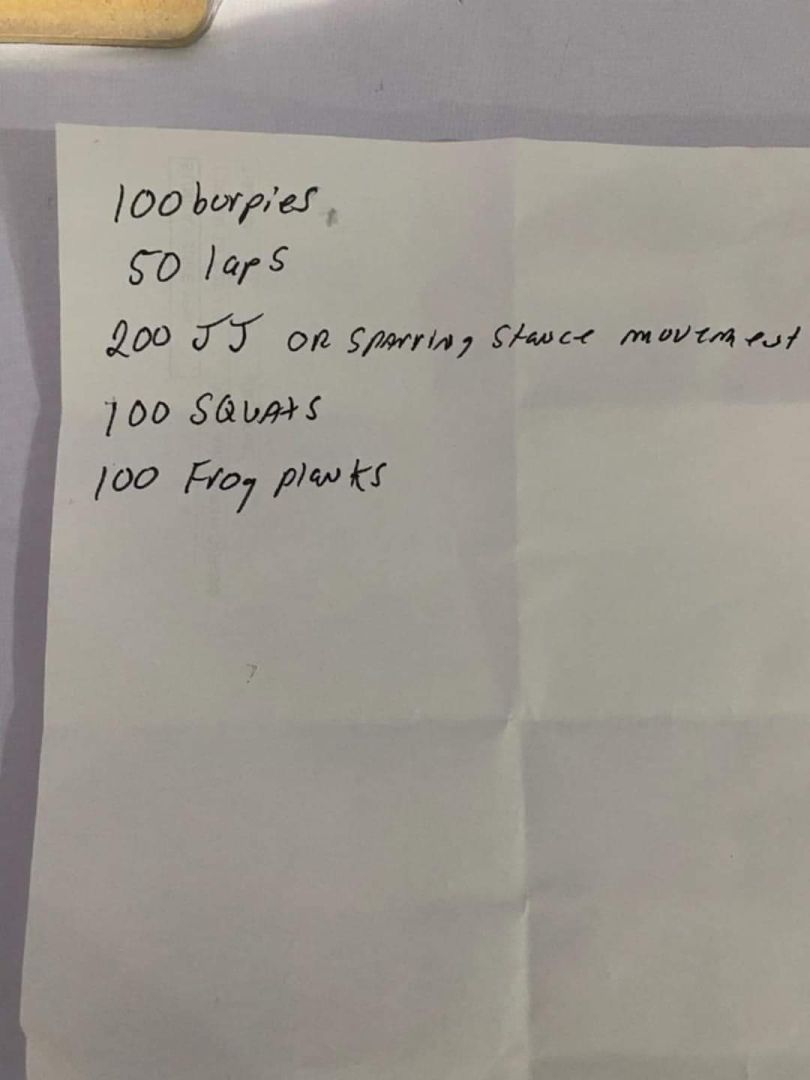 100 burpies
50 laps
200 JJ OR Sparring Stance movement
100 SQUATS
100 Frog planks